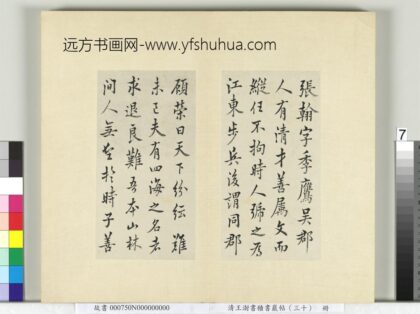 远方书画网-www.yfshuhua.com
張翰字季鷹吳郡
人有清才善屬文而
縱任不拘時人號之為
江東步兵後謂同郡
顧榮曰天下紛紜難
未已夫有四海之名者
求退良難吾本山林
間人無望於時子善
7
故書 000750N000000000
清王澍書積書巖帖（三十） 冊